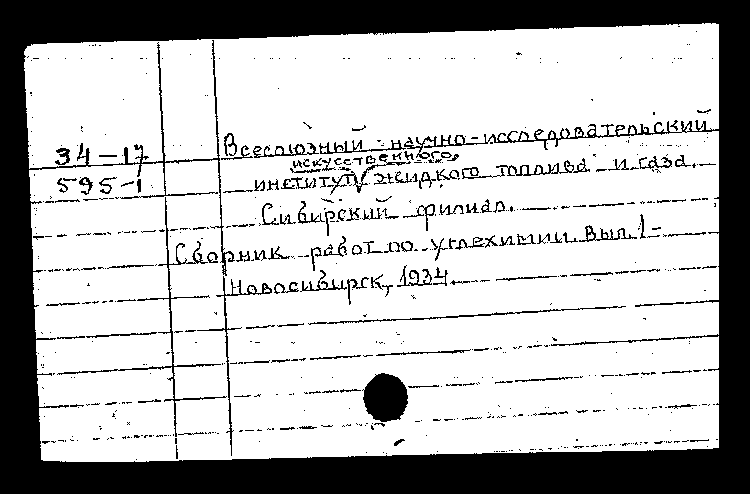 34-17
595-1
Всесоюзный научно-исследовательский
искусственного
институт жидкого топлива и газа.
Сибирский филиал.
Сборник работ по углехимии. Вып. 1-
Новосибирск, 1934.